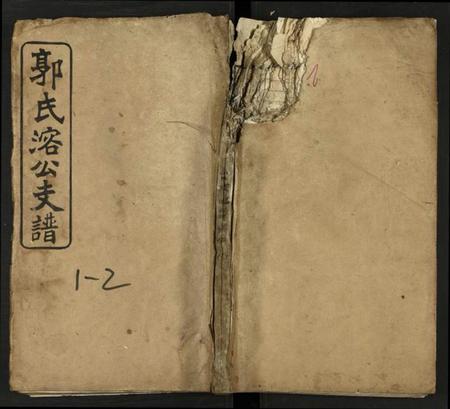 郭氏溶公支譜
1-2